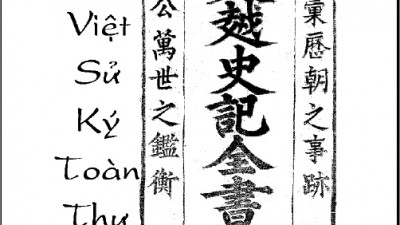 Việt
Sử
Ký
Toàn
Thư
彙歷朝之事跡
越史記全書
公萬世之鑑衡